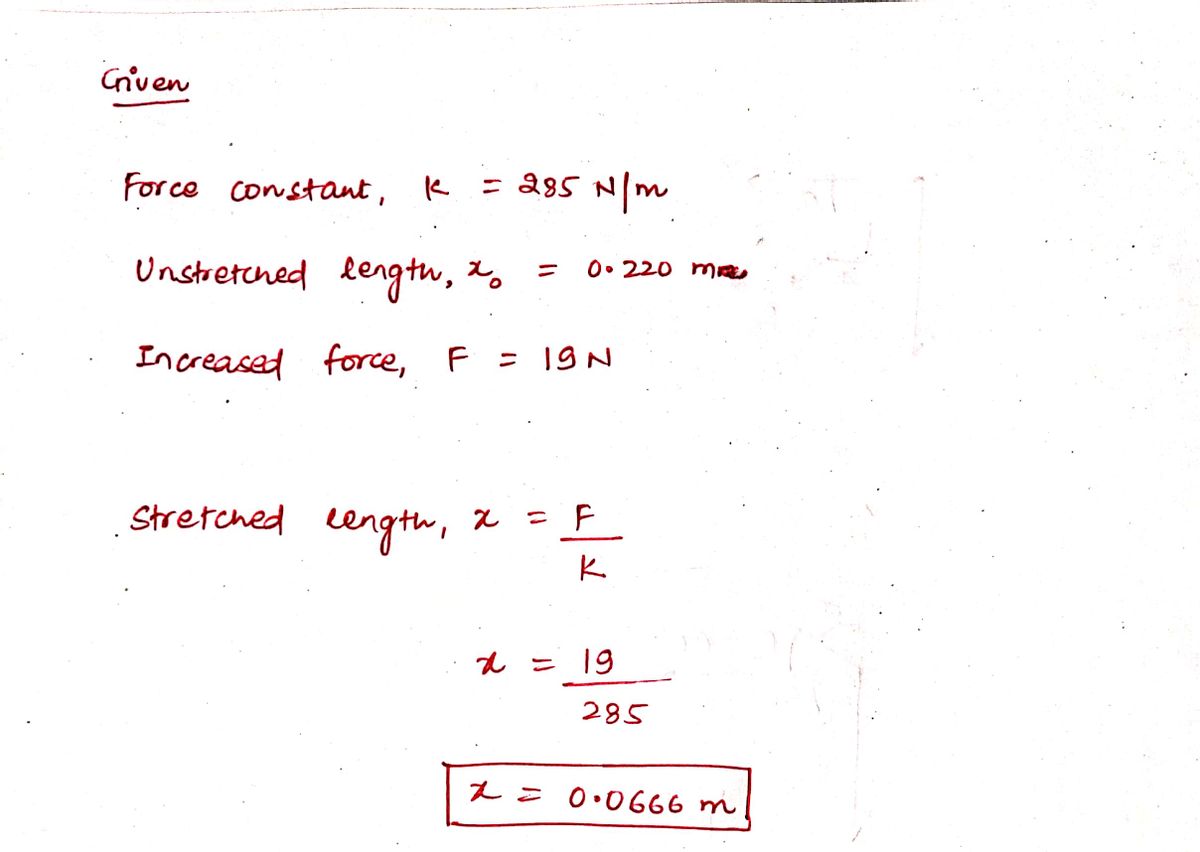 Given
Force constant, k = 285 N/m
Unstretched length, x₀ = 0.220 m
Increased force, F = 19 N
Stretched length, x = F
K
x = 19
285
x = 0.0666 m